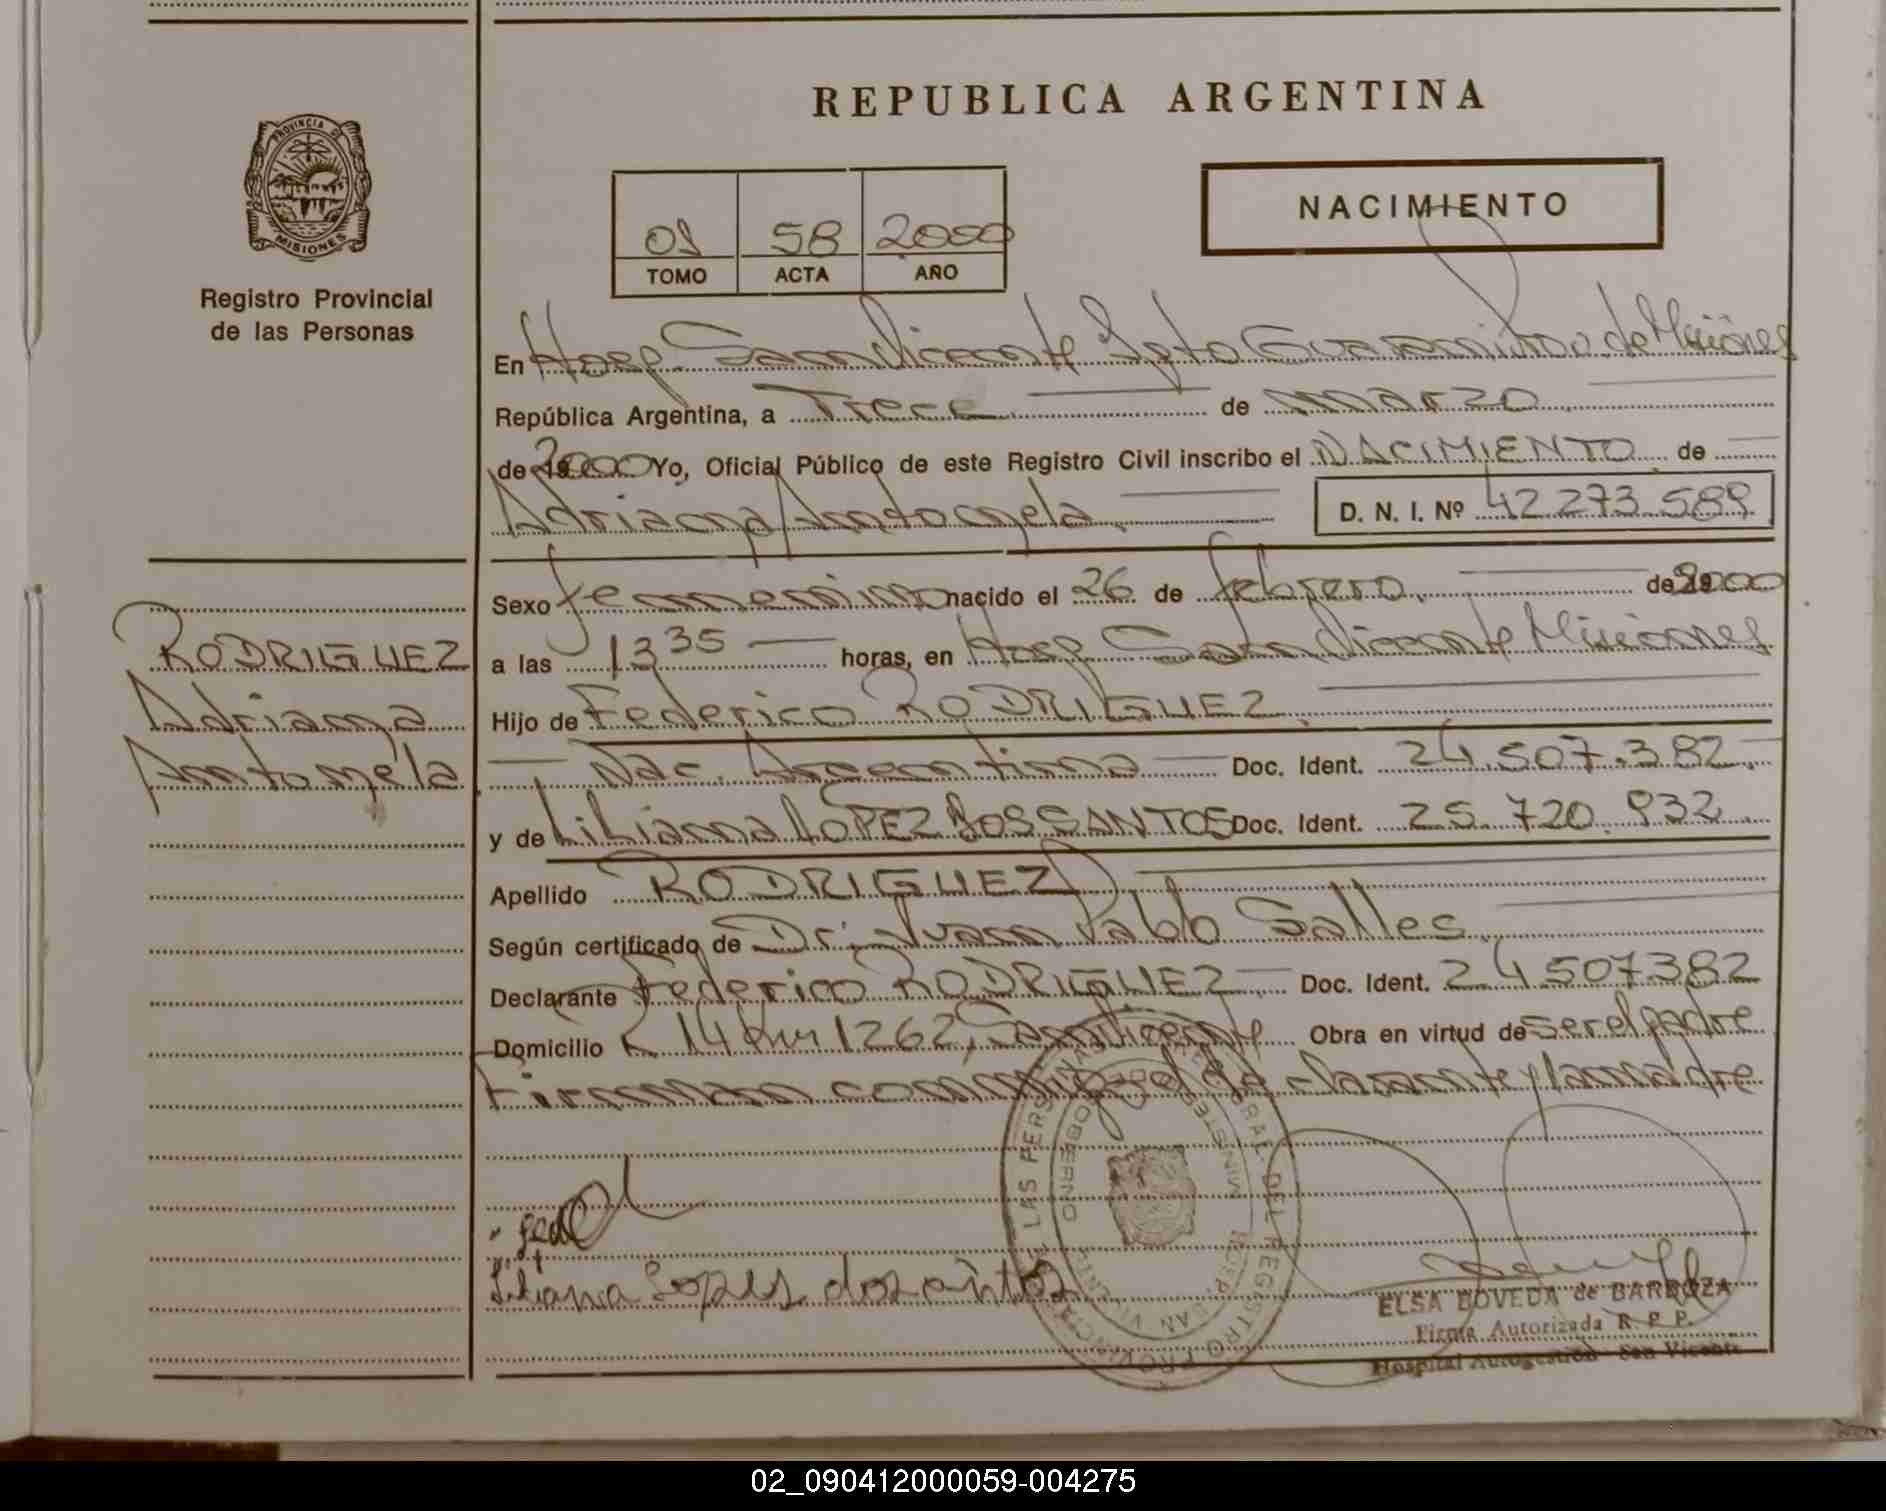 REPUBLICA ARGENTINA
PROVINCIA DE
MISIONES
Registro Provincial
de las Personas
01 58 2000
TOMO ACTA AÑO
NACIMIENTO
En Hosp. San Vicente Dpto Guaraní Prov. de Misiones
República Argentina, a Trece de marzo
de 2000 Yo, Oficial Público de este Registro Civil inscribo el NACIMIENTO de
Adriana Antonela D. N. I. Nº 42.273.589
Sexo femenino nacido el 26 de febrero de 2000
RODRIGUEZ
Adriana
Antonela
a las 13 35 horas, en Hosp San Vicente Misiones
Hijo de Federico RODRIGUEZ
Nac. Argentina Doc. Ident. 24.507.382
y de Liliana LOPEZ DOS SANTOS Doc. Ident. 25.720.932
Apellido RODRIGUEZ
Según certificado de Dr. Juan Pablo Salles
Declarante Federico RODRIGUEZ Doc. Ident. 24.507.382
Domicilio R 14 Km 1262, San Vicente Obra en virtud de ser el padre
Firman conmigo el declarante y la madre
Liliana Lopes dosantos
ELSA BOVEDA de BARBOZA
Firma Autorizada R. P. P.
Hospital Autogestión San Vicente
02_090412000059-004275